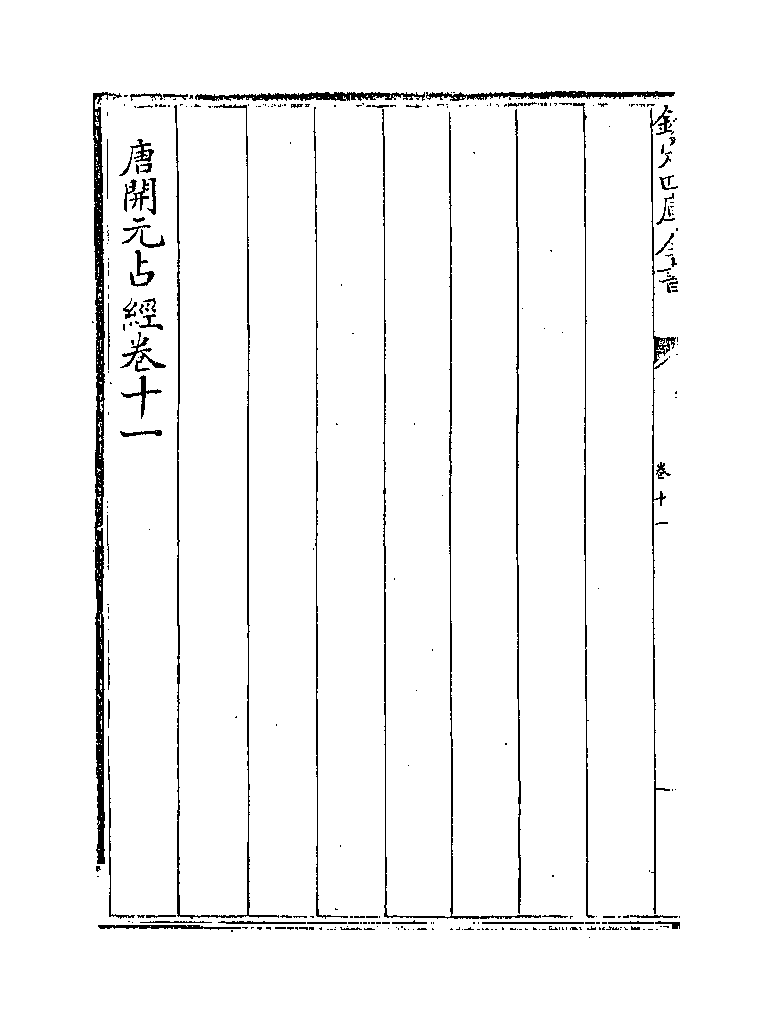 欽定四庫全書
卷十一
唐開元占經卷十一